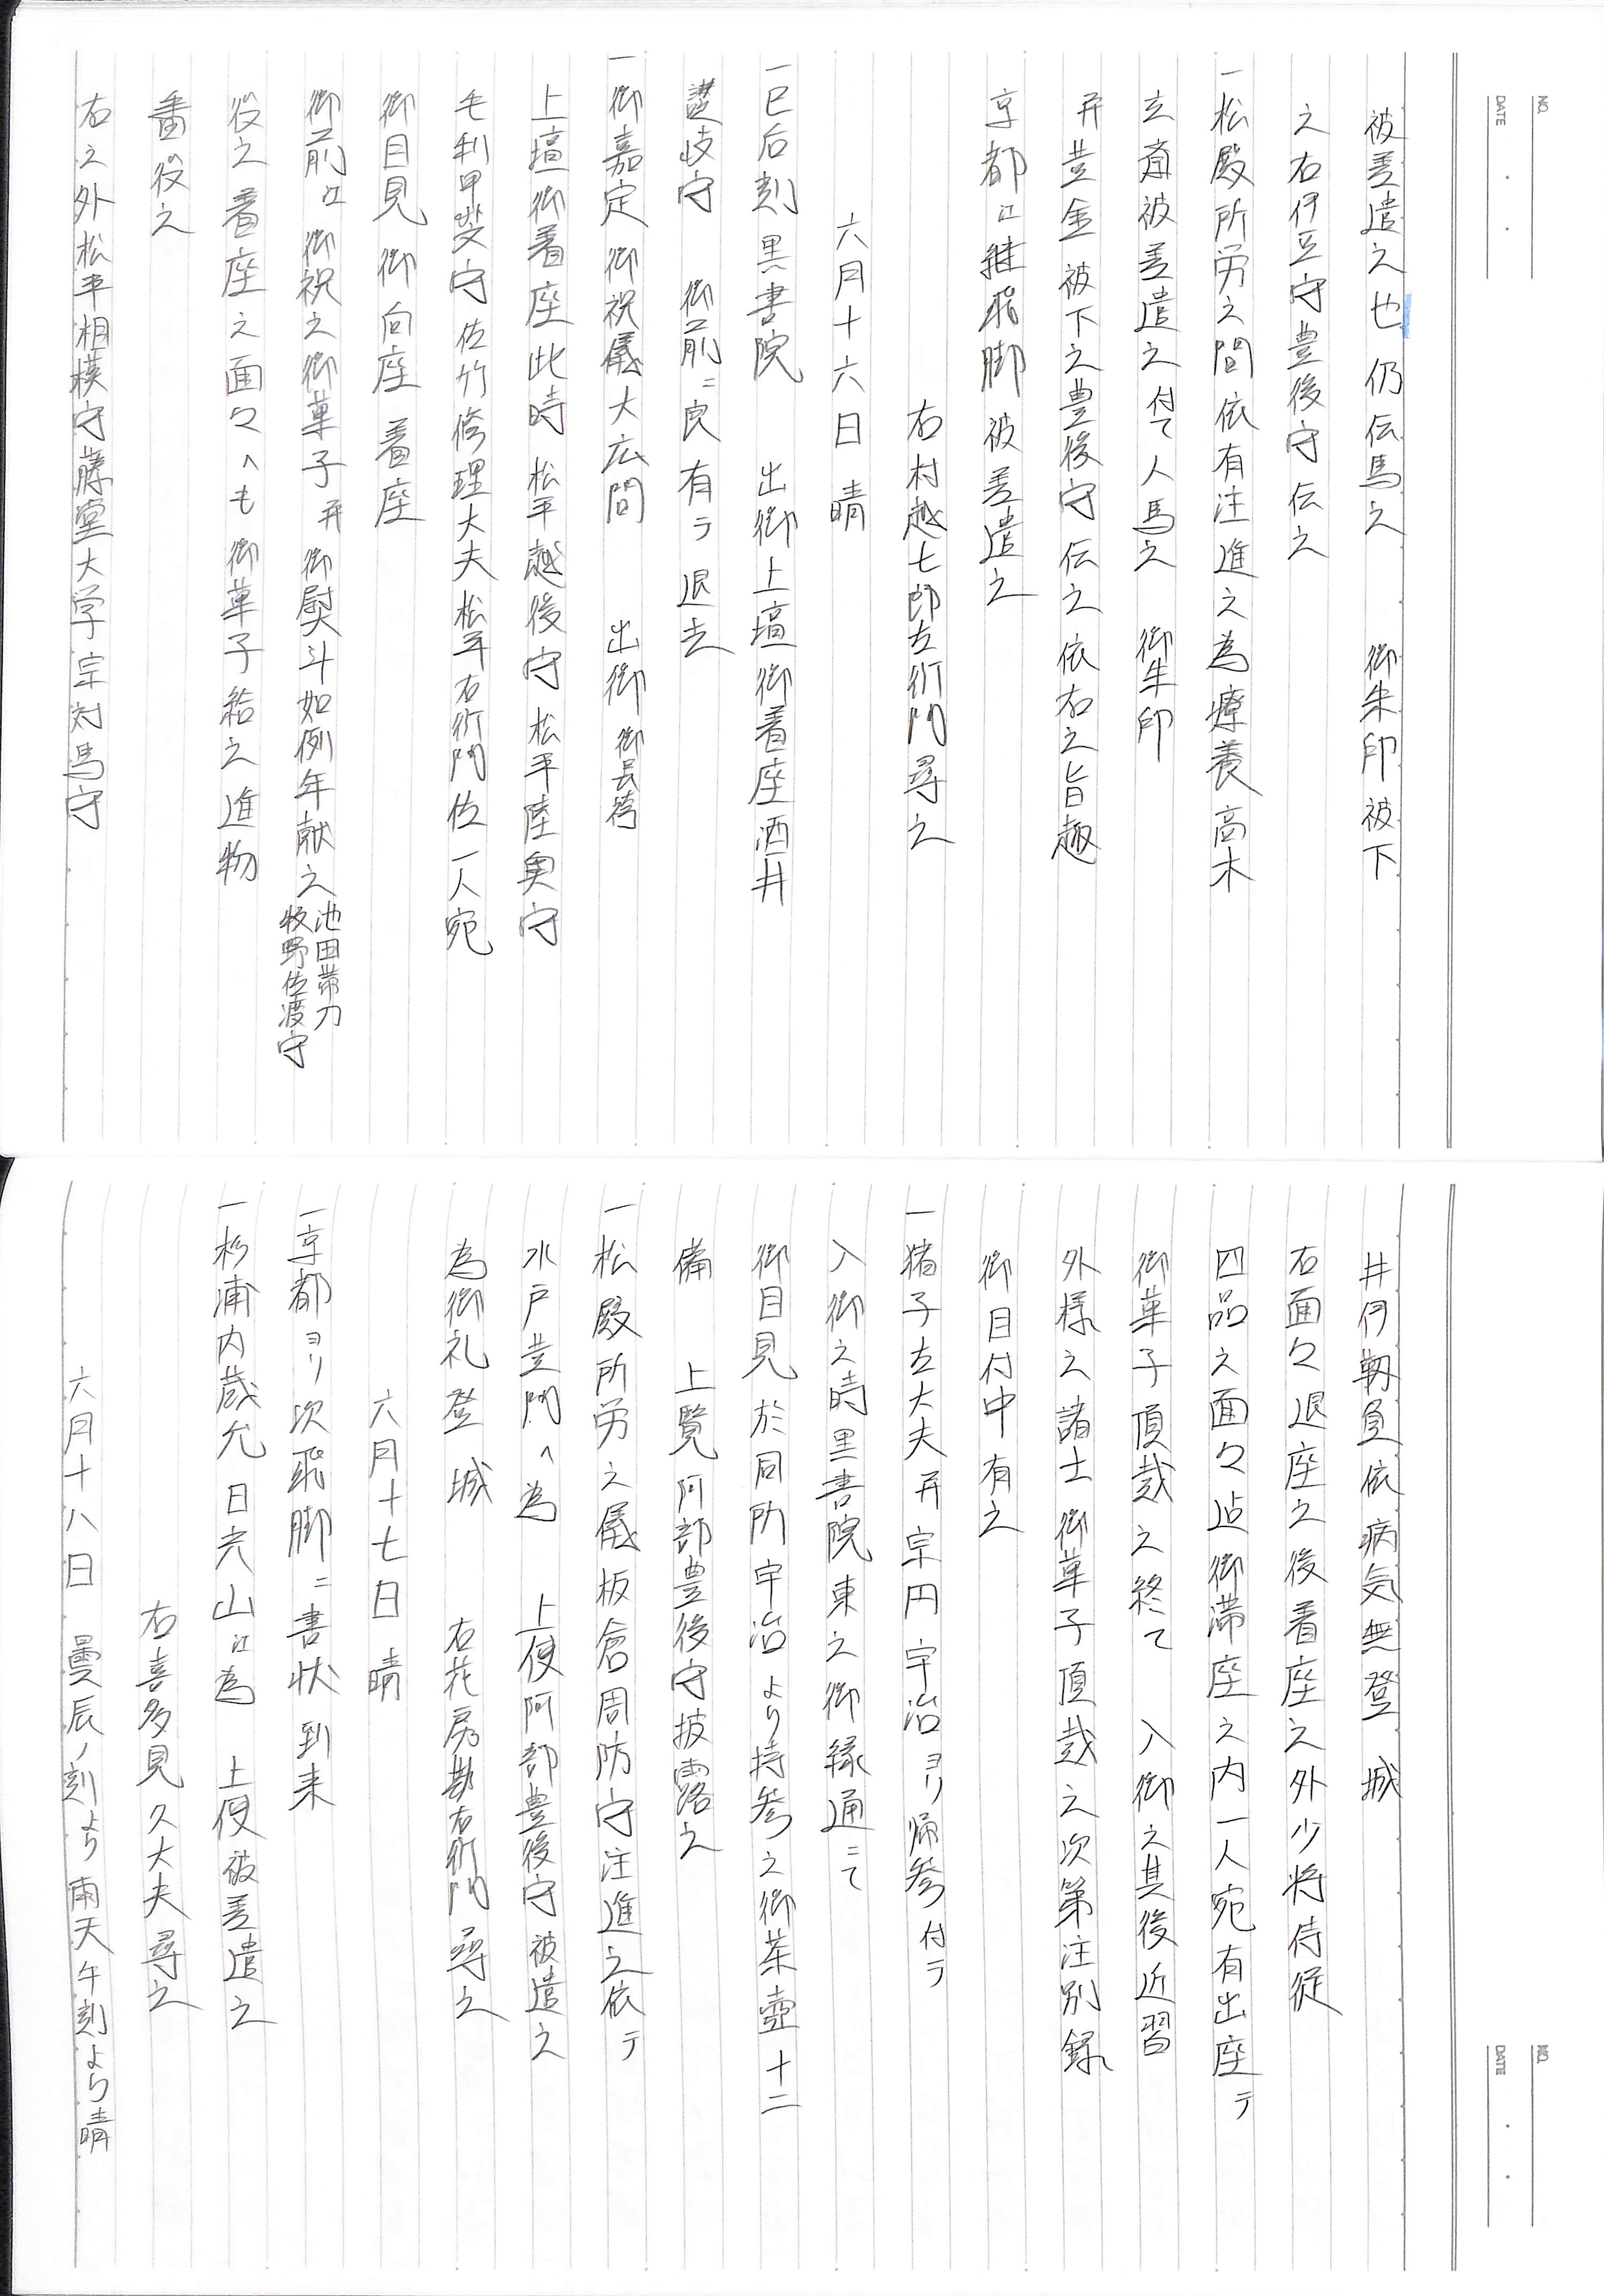 NO.
DATE
被差遣之也 仍伝馬之 御朱印被下
之右伊豆守豊後守伝之
一松殿所労之間依有注進之為療養高木
玄斎被差遣之付て人馬之 御朱印
并並金被下之豊後守伝之依右之旨趣
京都江継飛脚被差遣之
右村越七郎左衛門尋之
六月十六日 晴
一巳后刻黒書院 出御上壇御着座酒井
讃岐守 御前ニ良有テ退去
一御嘉定御祝儀大広間 出御 御長袴
上壇御着座此時 松平越後守 松平陸奥守
毛利甲斐守 佐竹修理大夫 松平右衛門佐一人宛
御目見 御向座 着座
御前江 御祝之御菓子并御熨斗如例年献之 池田帯刀
牧野佐渡守
役之着座之面々へも御菓子給之進物
番役之
右之外松平相模守藤堂大学宗対馬守
NO.
DATE
井伊靱負依病気無登 城
右面々退座之後着座之外少将侍従
四品之面々迠御滞座之内一人宛有出座テ
御菓子頂戴之終て 入御之其後近習
外様之諸士御菓子頂戴之次第注別録
御目付中有之
一猪子左大夫并宗円宇治ヨリ帰参付テ
入御之時黒書院東之御縁通ニて
御目見於同所宇治より持参之御茶壺十二
備 上覧阿部豊後守披露之
一松殿所労之儀板倉周防守注進之依テ
水戸並門へ為 上使阿部豊後守被遣之
為御礼登 城 右花房勘右衛門尋之
六月十七日 晴
一京都ヨリ次飛脚ニ書状到来
一杉浦内蔵允日光山江為 上使被差遣之
右喜多見久大夫尋之
六月十八日 曇辰ノ刻より雨天午刻より晴